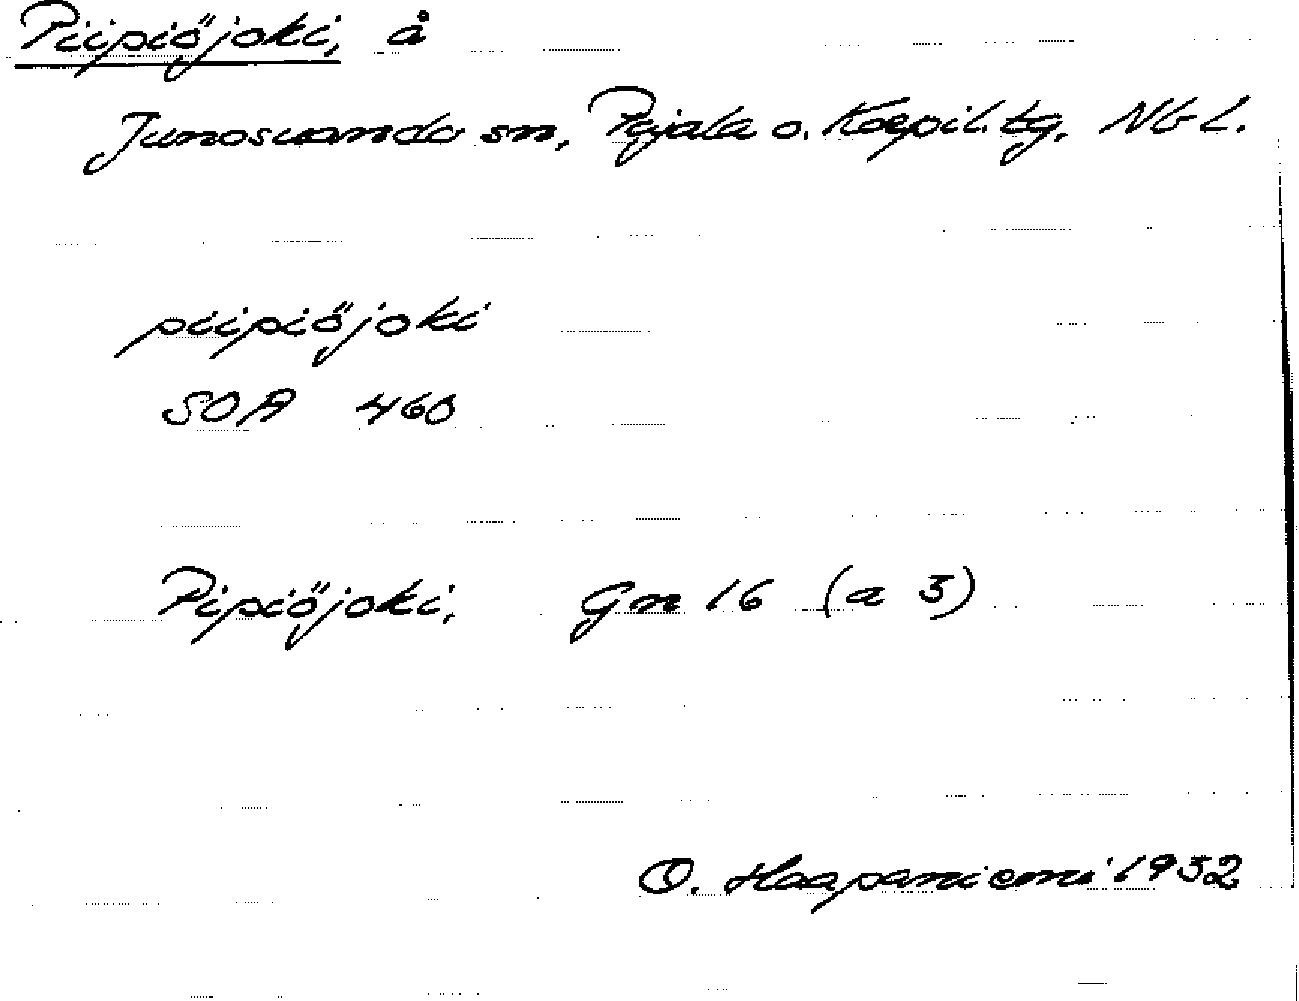 Piipiöjoki, å
Junosuando sn, Pajala o. Korpil. tg, Nb L.
piipiöjoki
SOA 460
Pipiöjoki, Gn 16 (a 3)
O. Haapaniemi 1932